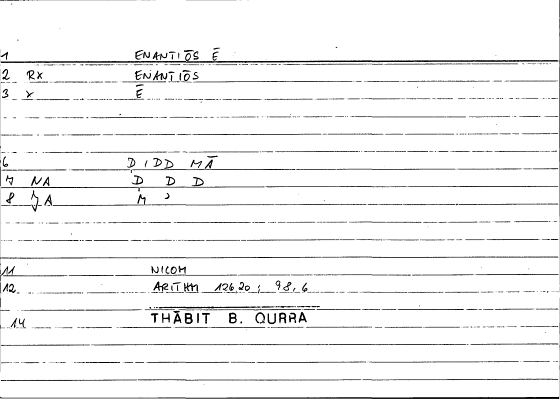 1 ENANTIŌS Ē
2 RX ENANTIŌS
3 X Ē
6 ḌIDD MĀ
7 NA Ḍ D D
8 A M ʾ
11 NICOM
12. ARITHM 126,20; 98,6
14 THĀBIT B. QURRA